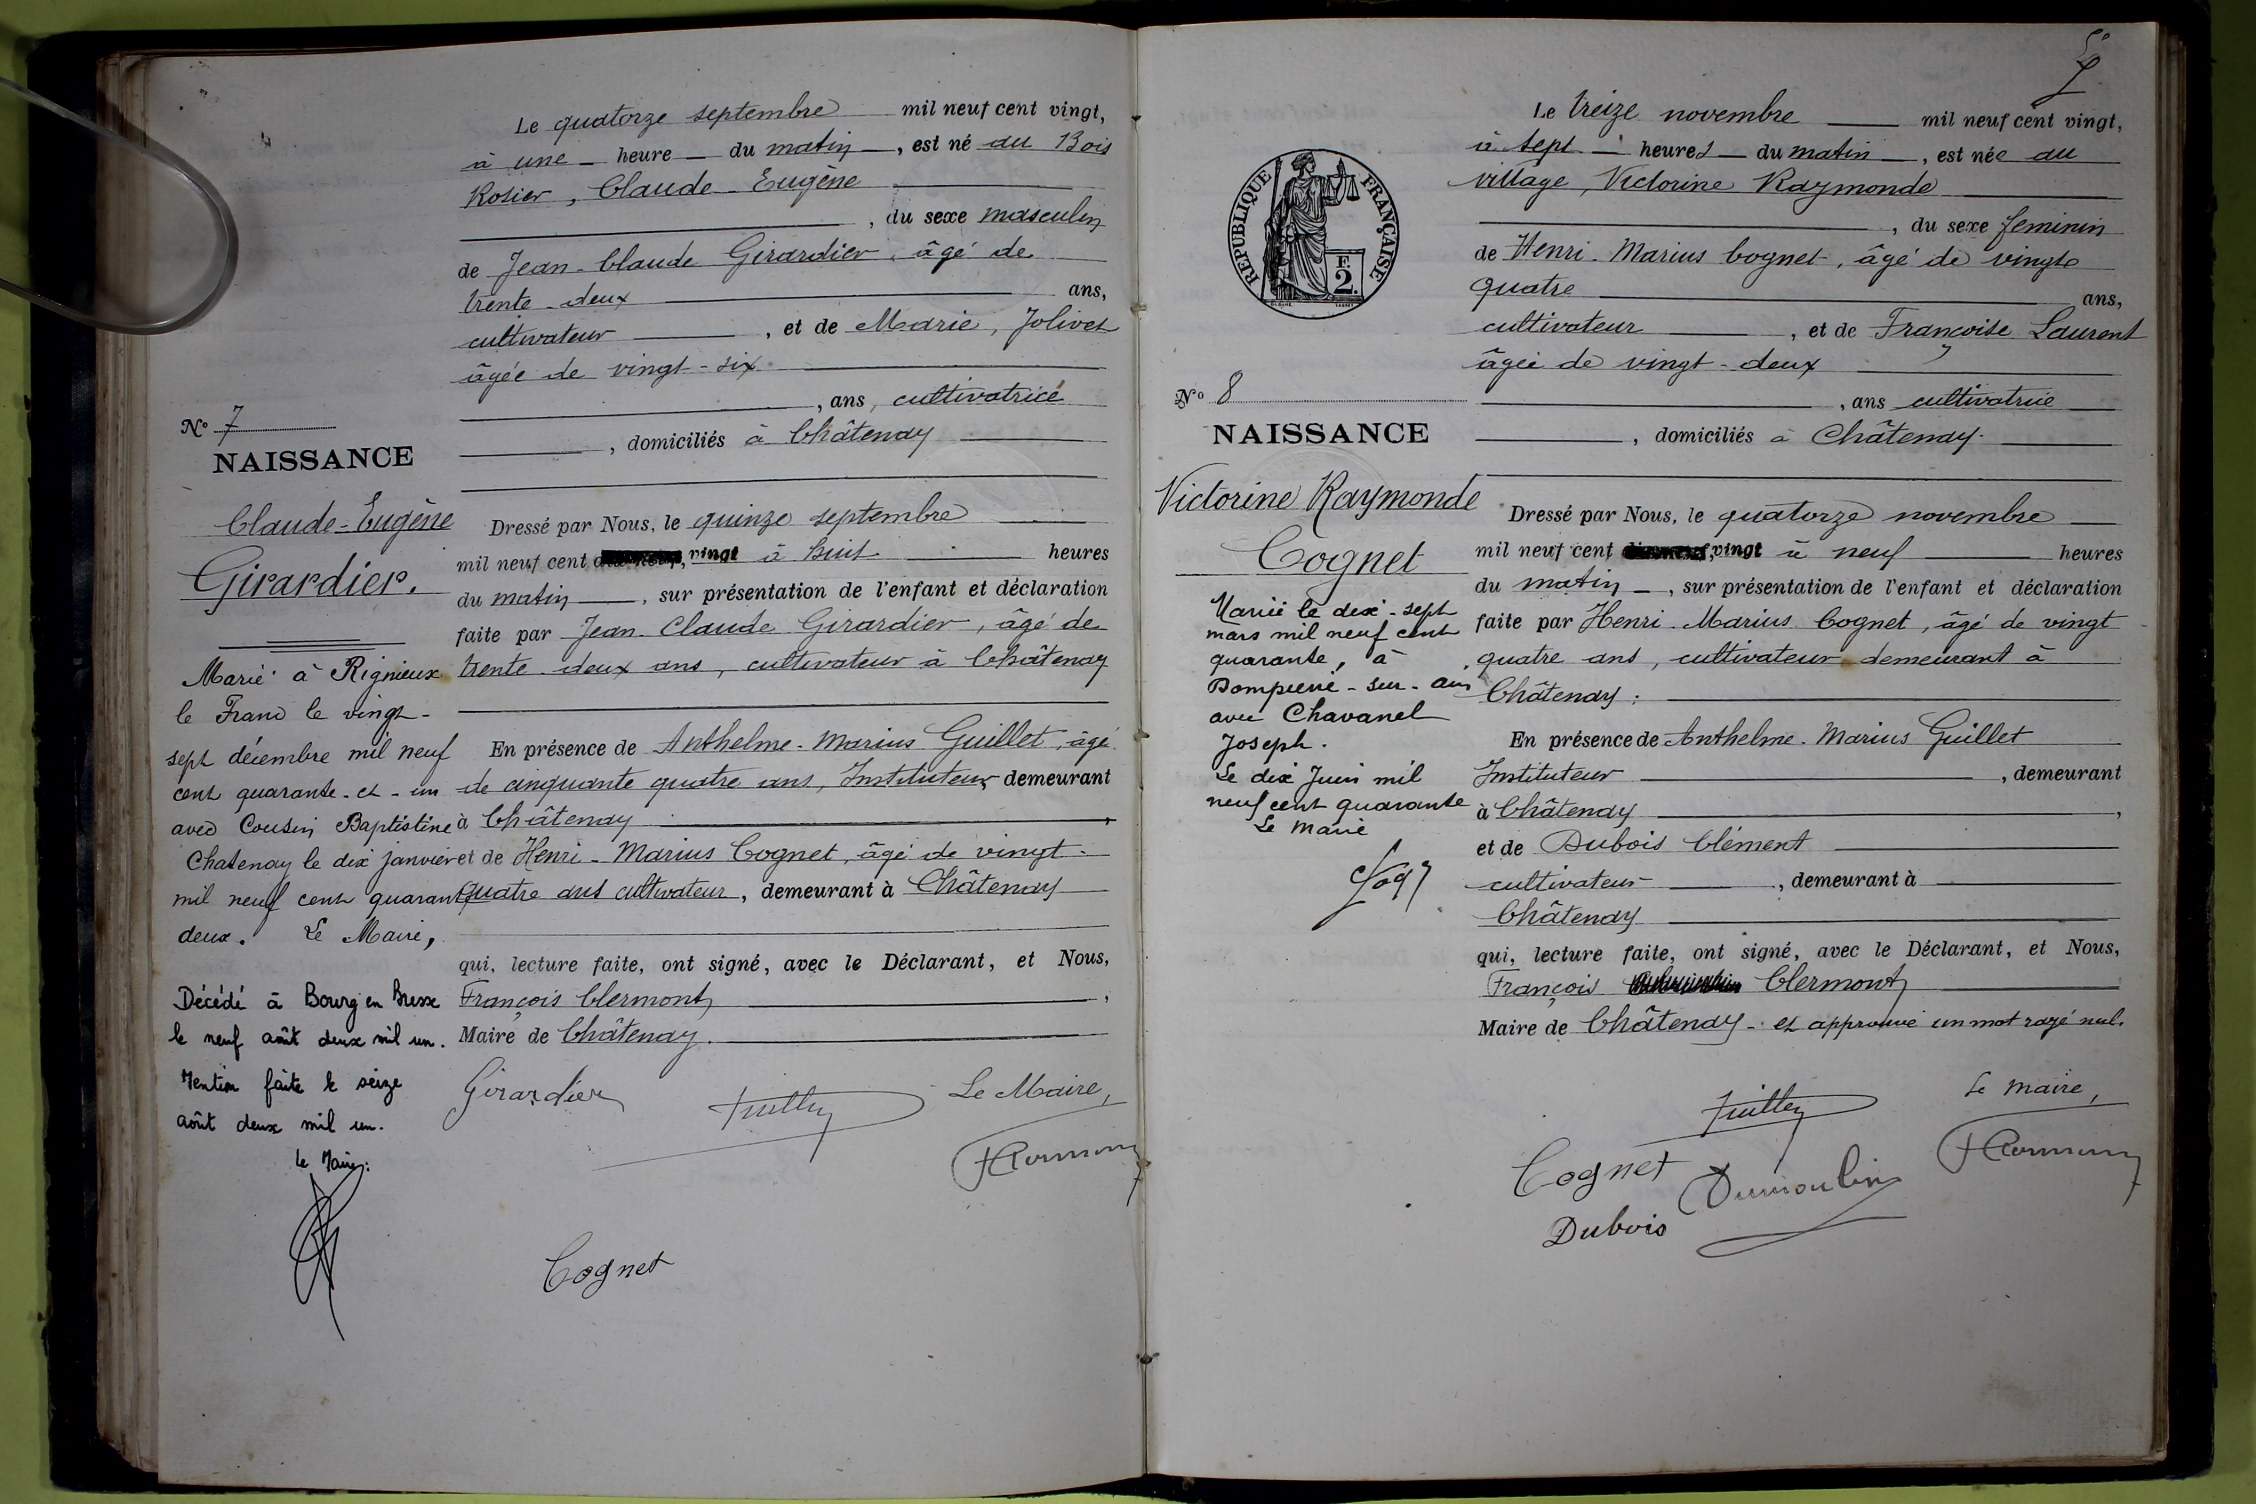 Le quatorze septembre mil neuf cent vingt,
à une heure du matin, est né au Bois
Rosier, Claude-Eugène
, du sexe masculin
de Jean-Claude Girardier, âgé de
trente-deux ans,
cultivateur, et de Marie, Jolivet
âgée de vingt-six
, ans, cultivatrice
, domiciliés à Châtenay
Nº 7
NAISSANCE
Claude-Eugène
Girardier.
Marié à Rignieux
le Franc le vingt-
sept décembre mil neuf
cent quarante-et-un
avec Cousin Baptistine
Chatenay le dix janvier
mil neuf cent quarante
deux. Le Maire,
Décédé à Bourg en Bresse
le neuf août deux mil un.
Mention faite le seize
août deux mil un.
Le Maire:
Dressé par Nous, le quinze septembre
mil neuf cent vingt à huit heures
du matin, sur présentation de l'enfant et déclaration
faite par Jean-Claude Girardier, âgé de
trente-deux ans, cultivateur à Châtenay
En présence de Anthelme-Marius Guillet, âgé
de cinquante quatre ans, Instituteur, demeurant
à Châtenay,
et de Henri-Marius Cognet, âgé de vingt-
quatre ans cultivateur, demeurant à Châtenay
qui, lecture faite, ont signé, avec le Déclarant, et Nous,
François Clermont,
Maire de Châtenay.
Girardier
Le Maire,
Cognet
Le treize novembre mil neuf cent vingt,
à sept heures du matin, est née au
village, Victorine Raymonde
, du sexe feminin
de Henri-Marius Cognet, âgé de vingt
quatre ans,
cultivateur, et de Françoise Laurent
âgée de vingt-deux
, ans cultivatrice
, domiciliés à Châtenay.
RÉPUBLIQUE FRANÇAISE
2
Nº 8
NAISSANCE
Victorine Raymonde
Cognet
Mariée le dix-sept
mars mil neuf cent
quarante, à
Dompierre-sur-ain
avec Chavanel
Joseph.
Le dix Juin mil
neuf cent quarante
Le Maire
Dressé par Nous, le quatorze novembre
mil neuf cent vingt à neuf heures
du matin, sur présentation de l'enfant et déclaration
faite par Henri-Marius Cognet, âgé de vingt
quatre ans, cultivateur demeurant à
Châtenay:
En présence de Anthelme-Marius Guillet
Instituteur, demeurant
à Châtenay,
et de Dubois Clément
cultivateur, demeurant à
Châtenay
qui, lecture faite, ont signé, avec le Déclarant, et Nous,
François Clermont
Maire de Châtenay. et approuvé un mot rayé nul.
Le maire,
Cognet Dumoulin
Dubois